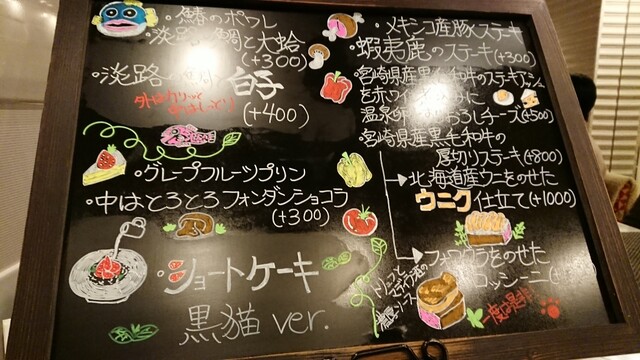 ・鰆のポワレ
・淡路 鯛と大蛤
(+300)
・淡路 白子
外はカリッと
(+400)
・グレープフルーツプリン
・中はとろとろフォンダンショコラ
(+300)
・ショートケーキ
黒猫 ver.
・メキシコ産豚ステーキ
・蝦夷鹿のステーキ(+300)
・宮崎県産黒毛和牛のステーキ
を赤ワイン
温泉卵 おろしチーズ(+500)
・宮崎県産黒毛和牛の
厚切りステーキ(+800)
→北海道産ウニをのせた
ウニク仕立て(+1000)
→フォワグラをのせた
ロッシーニ(+
一度は是非